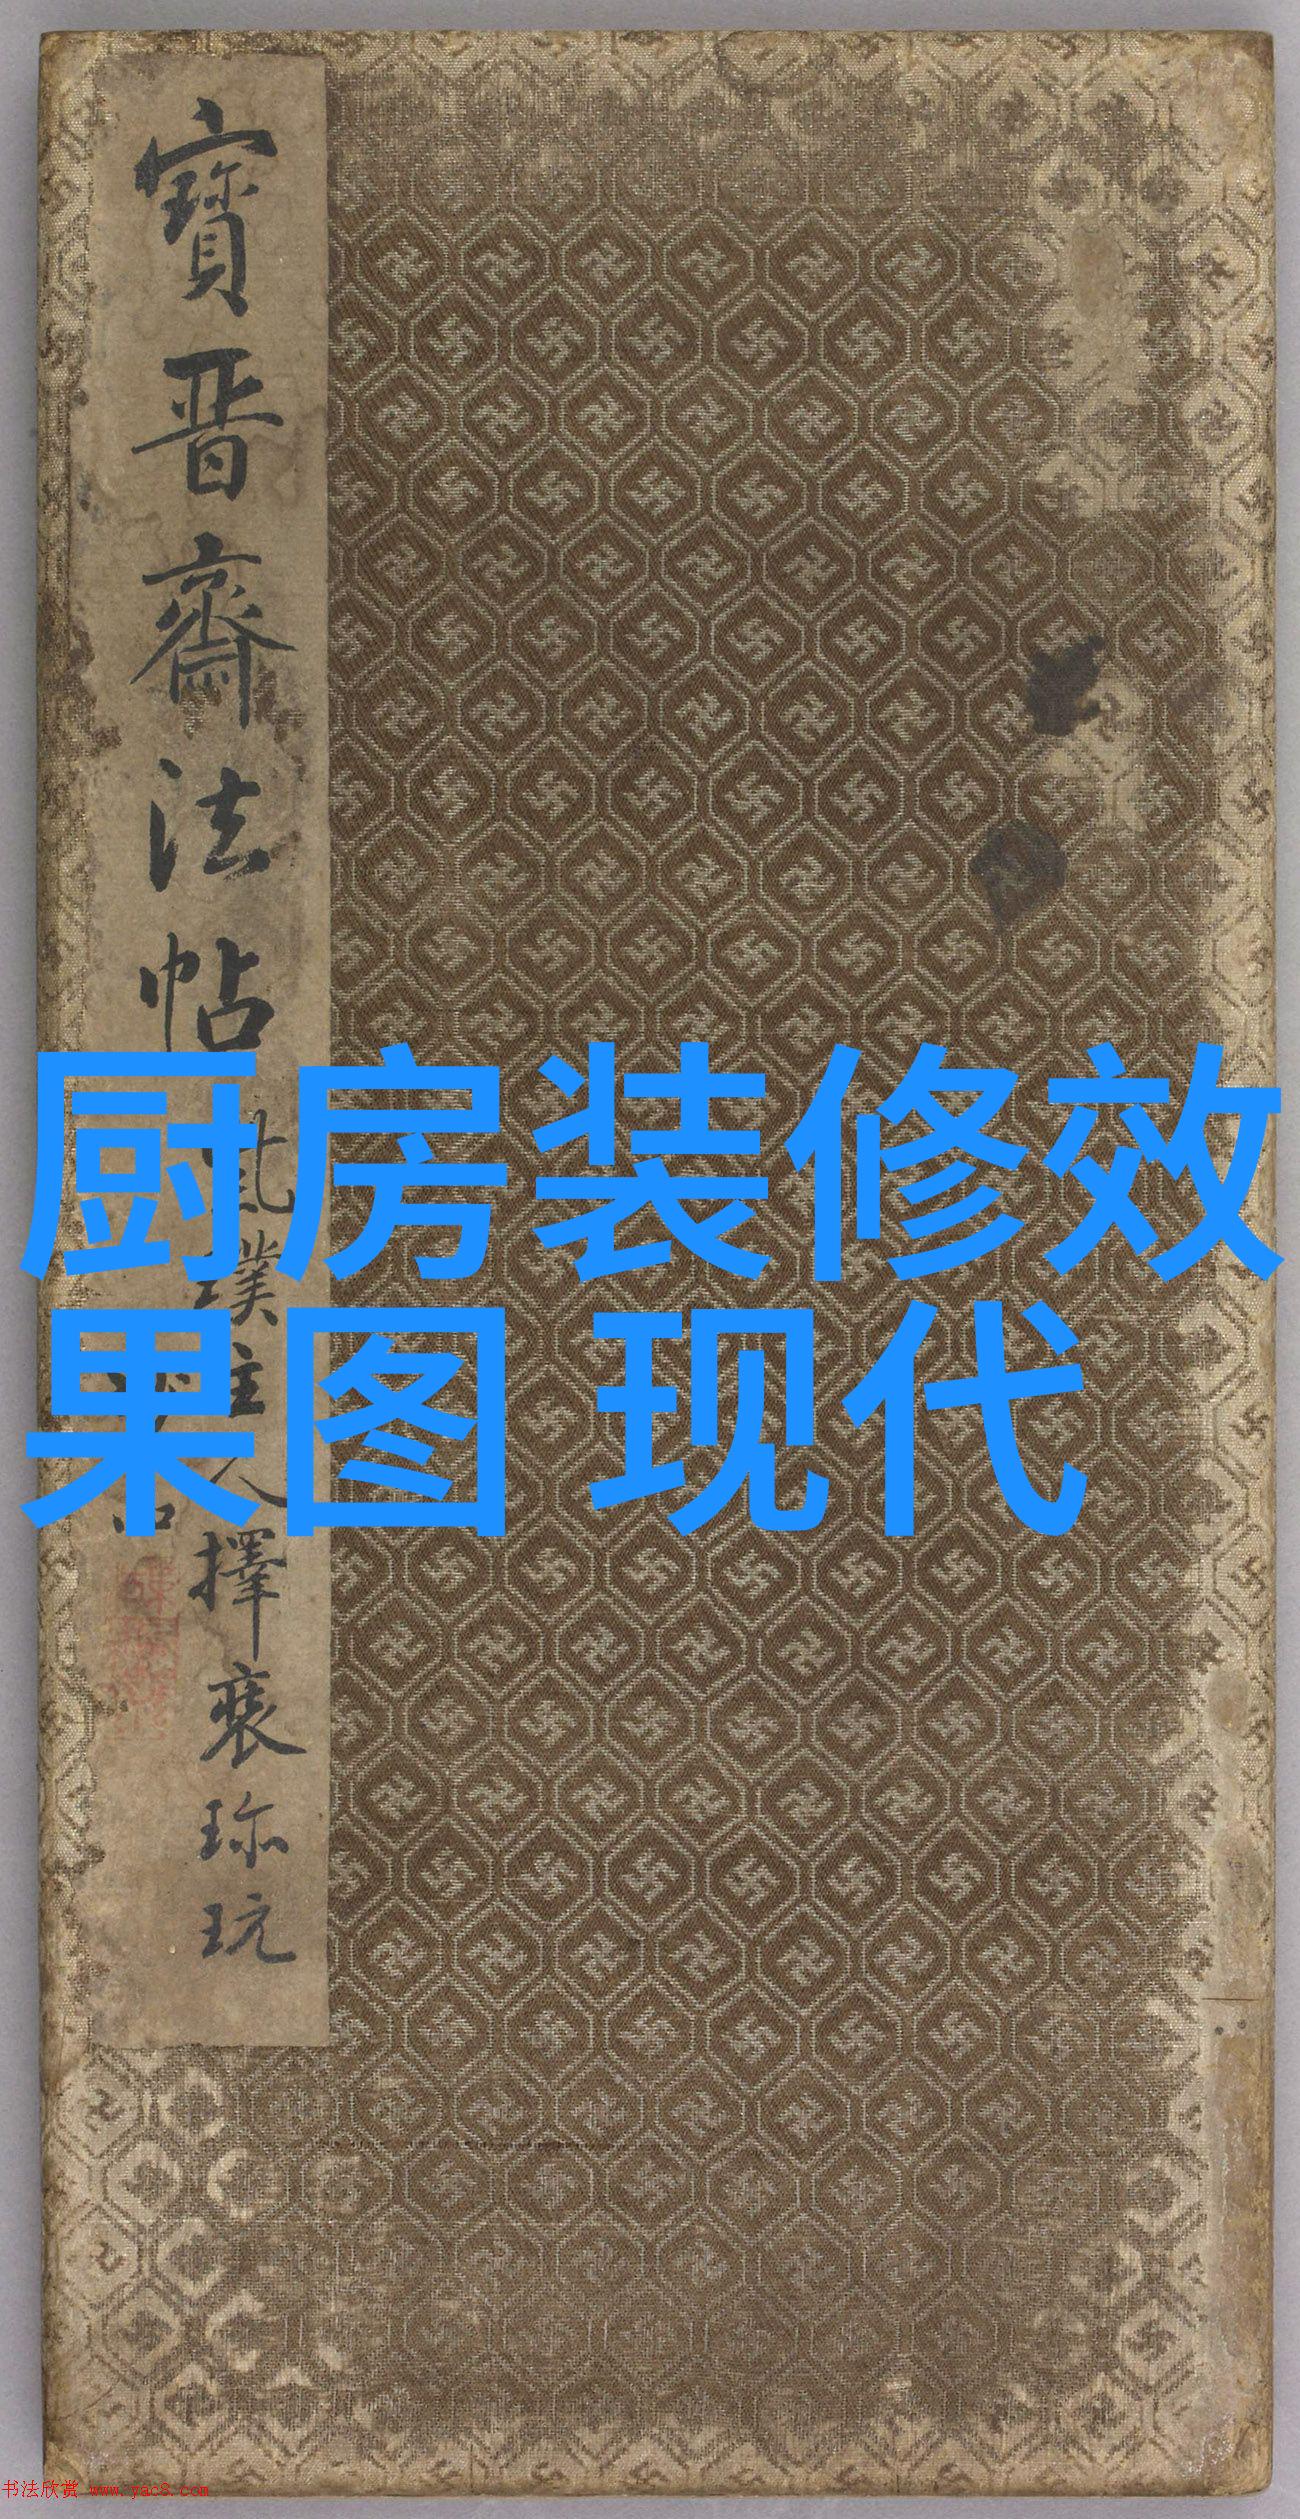 寶晉齋法帖
主人擇裘珎玩
厨房装修效
果图 现代
书法欣赏 www.yac8.com